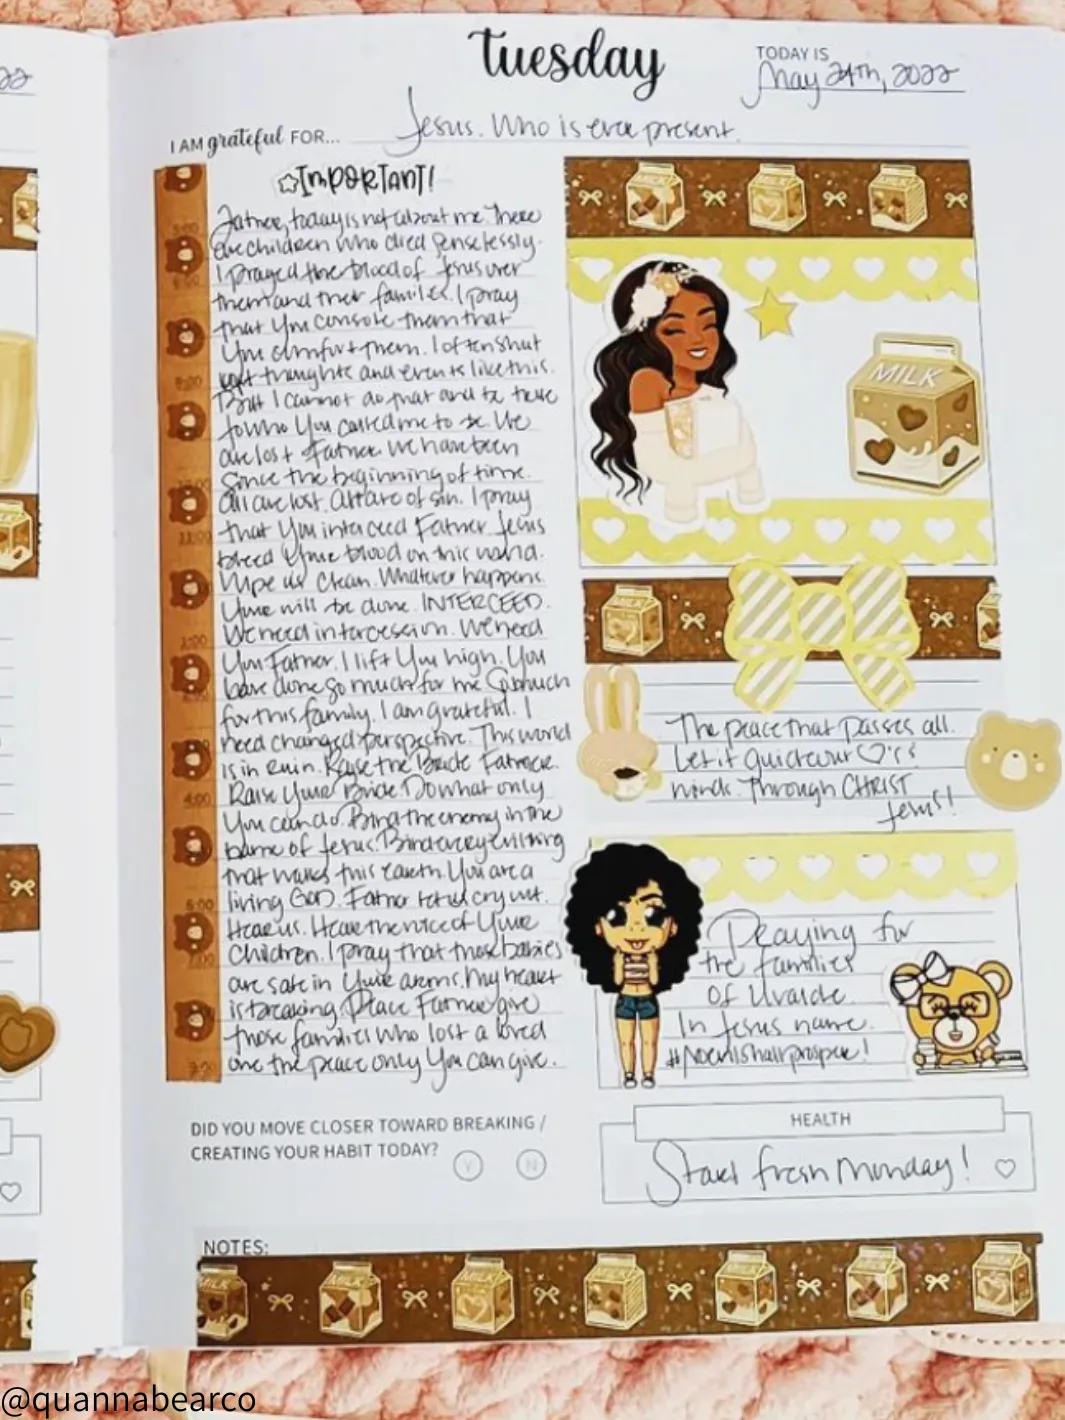 22
tuesday
TODAY IS
May 24th, 2022
I AM grateful FOR...
Jesus. Who is ever present.
Important!
Father, today is not about me. There
are children who died senselessly.
I prayed the blood of Jesus over
them and their families. I pray
that You console them that
You comfort them. I often shut
out thoughts and events like this.
But I cannot do that and be true
to who You called me to be. We
are lost Father. We have been
since the beginning of time.
All are lost. All are of sin. I pray
that You interceed Father Jesus
bleed Your blood on this world.
Wipe us clean. Whatever happens
Your will be done. INTERCEED.
We need intercession. We need
You Father. I lift You high. You
have done so much for me. So much
for this family. I am grateful. I
need changed perspective. This world
is in ruin. Raise the Bride Father.
Raise Your Bride. Do what only
You can do. Bind the enemy in the
name of Jesus. Bind every evil thing
that walks this earth. You are a
living GOD. Father cry out.
Hear us. Hear the voice of Your
Children. I pray that those babies
are safe in Your arms. My heart
is breaking. Please Father give
those families who lost a loved
one the peace only You can give.
MILK
The peace that passes all.
Let it guard our ♡'s
minds. Through CHRIST
Jesus!
Praying for
the families
of Uvalde.
In Jesus name.
#NoevilShallprosper!
DID YOU MOVE CLOSER TOWARD BREAKING /
CREATING YOUR HABIT TODAY?
Y N
HEALTH
Start fresh Monday!
NOTES:
@quannabearco